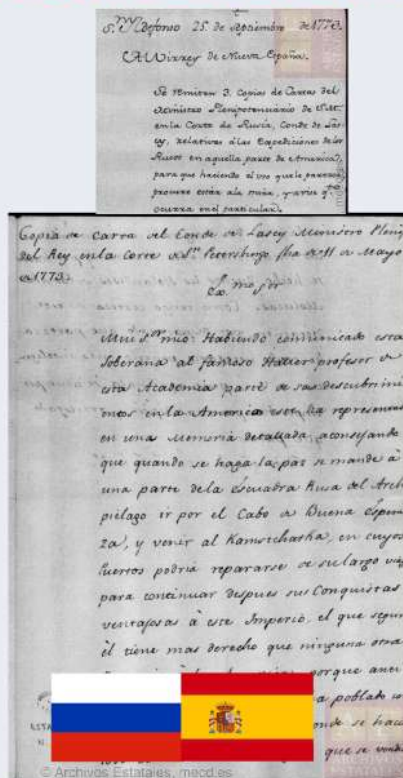 Sn Ildefonso 25 de Septiembre de 1773.
Al Virrey de Nueva España.
Se remiten 3. Copias de Cartas del
Ministro Plenipotenciario de S.M.
en la Corte de Rusia, Conde de Las-
cy, relativas á las Expediciones de los
Rusos en aquella parte de America,
para que haciendo el uso que le parezca
procure estár ala mira, y avise qto
ocurra en el particular.
Copia de carta del Conde de Lascy Ministro Plenip
del Rey en la Corte de Sn Petersburgo fha de 11 de Mayo
de 1773.
Exmo Sor
Mui Sor mio: Habiendo comunicado esta
Soberana al famoso profesor de
esta Academia parte de sus descubrimi
entos en la America este ha representado
en una Memoria detallada, aconsejando
que quando se haga la paz se mande à
una parte de la Escuadra Rusa del Archi
piélago ir por el Cabo de Buena Espera
za, y venir al Kamtchatka, en cuyos
Puertos podria repararse de su largo viaje
para continuar despues sus Conquistas
ventajosas à este Imperio, el que segun
él tiene mas derecho que ninguna otra
porque anti
poblado
donde se hace
que se
© Archivos Estatales, mecd.es
ARCHIVOS
ESTATALES